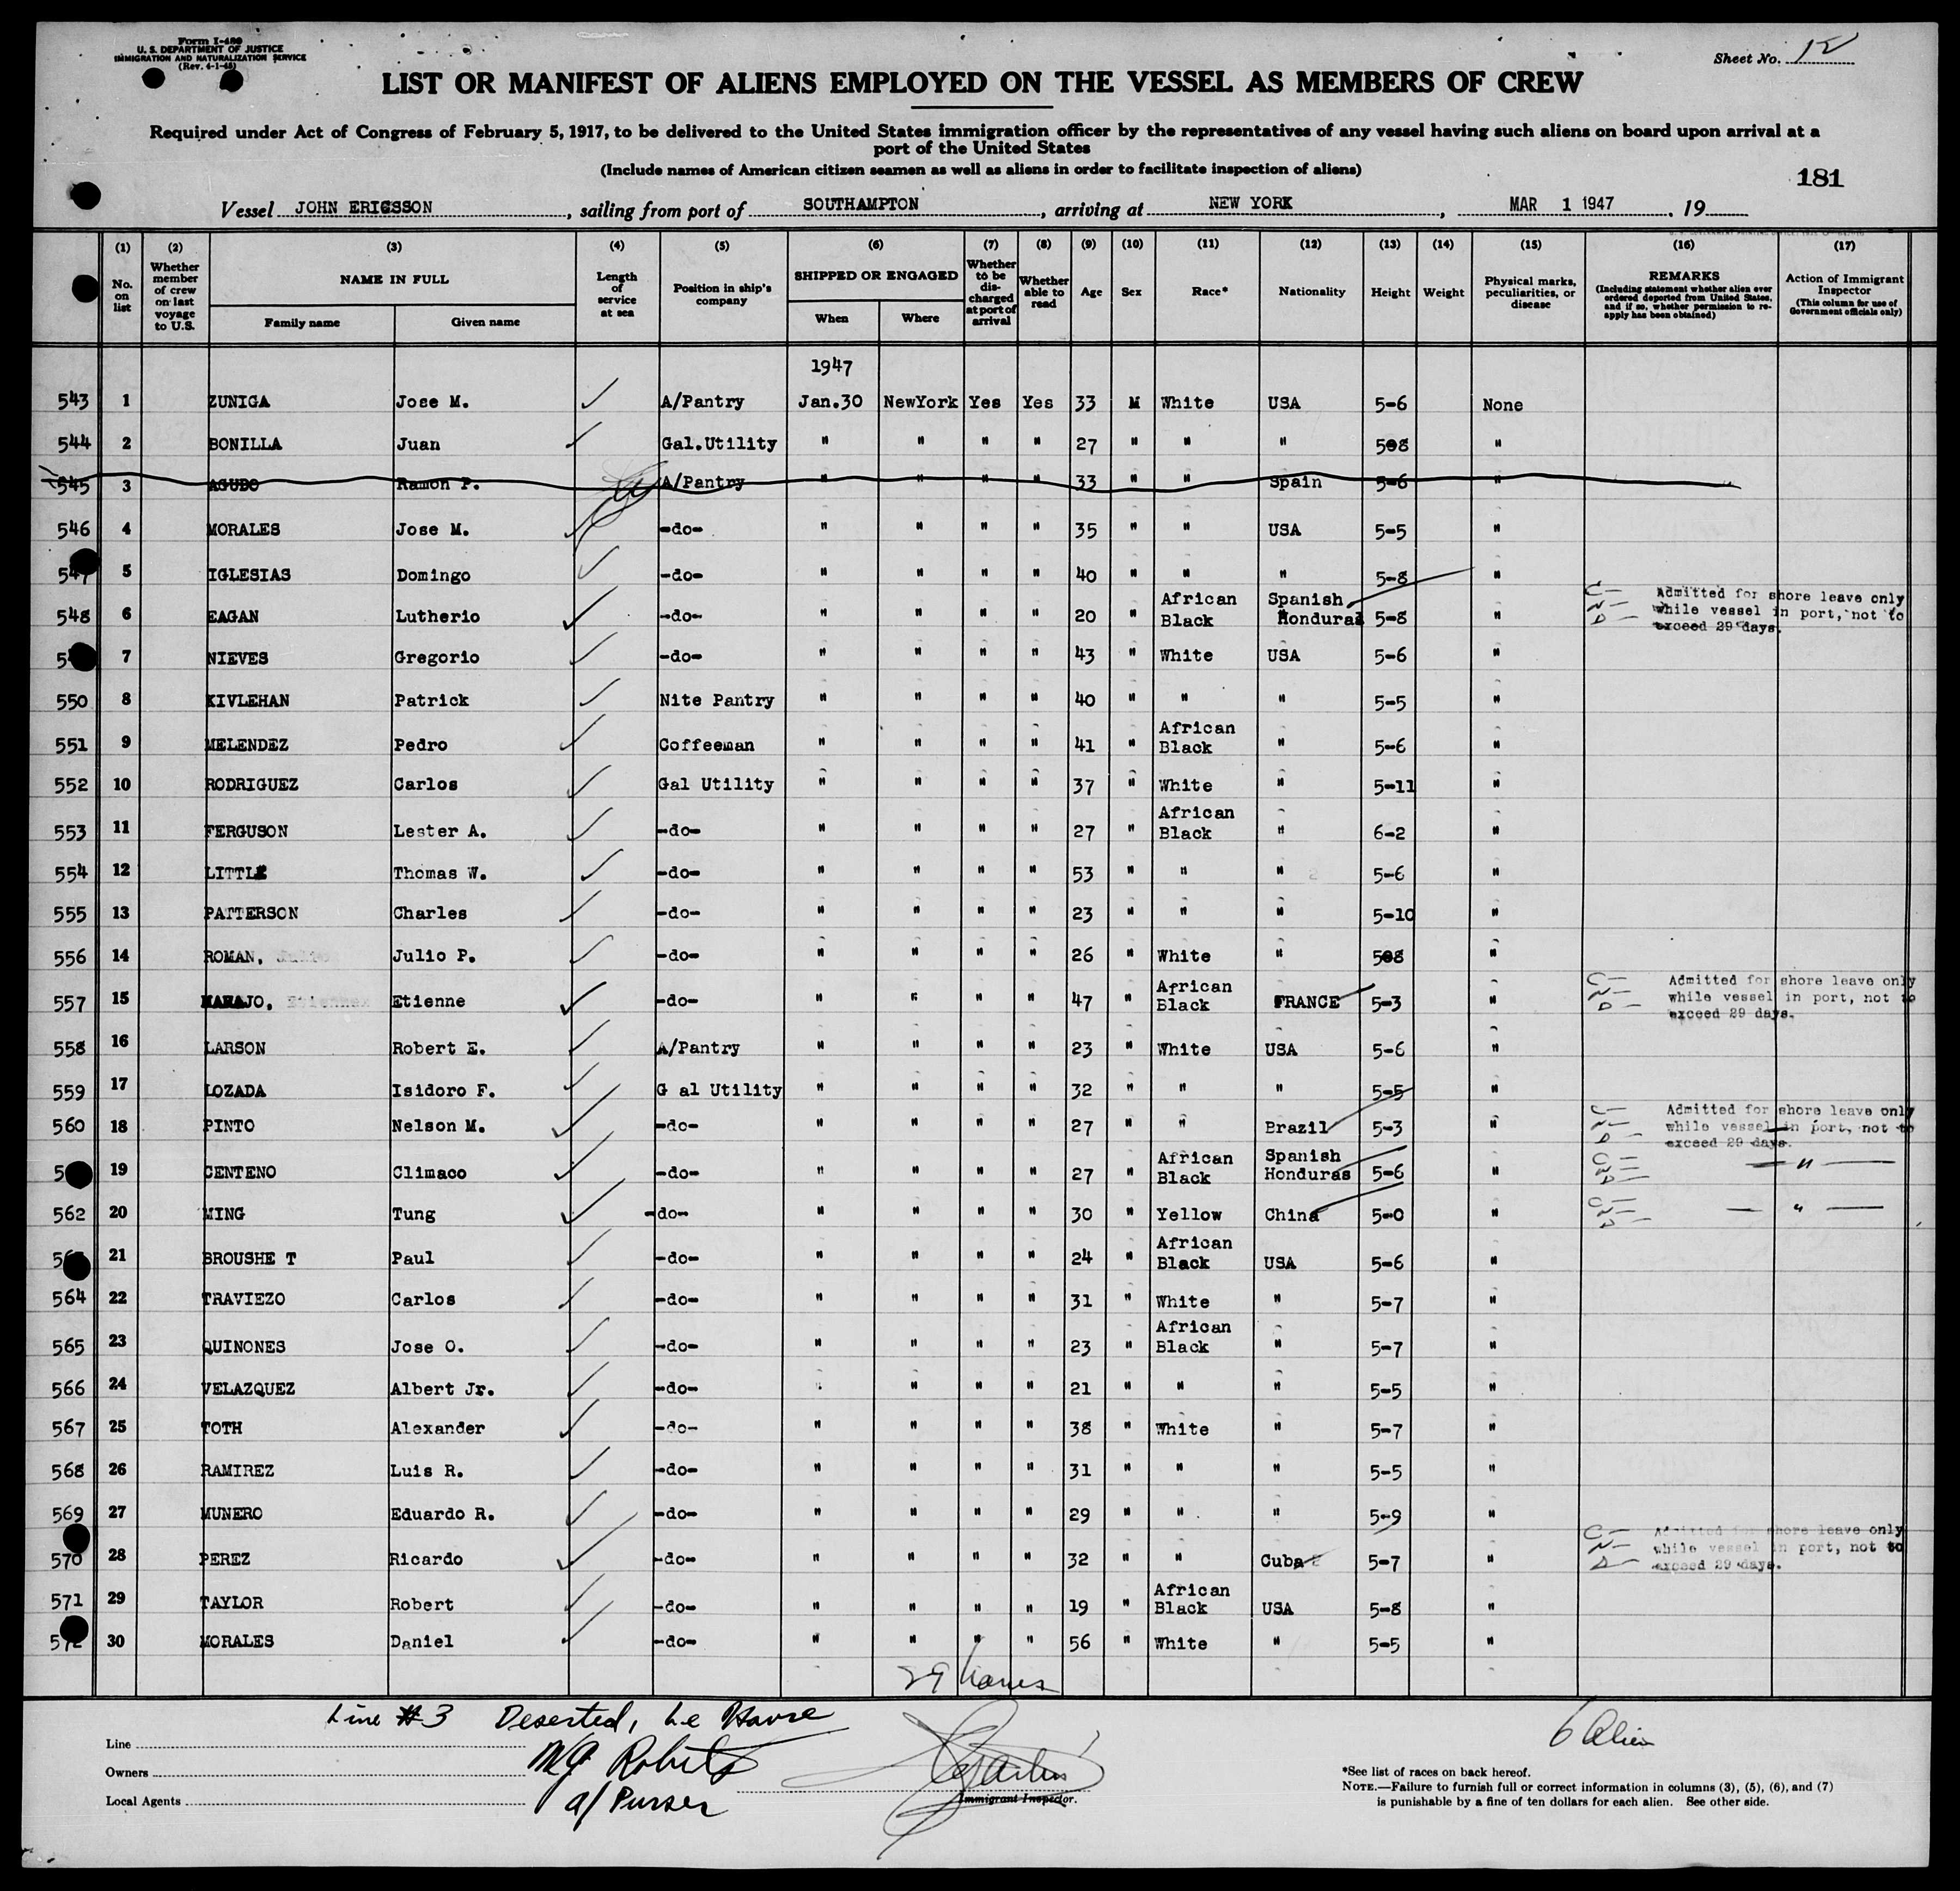 Form I-480
U. S. DEPARTMENT OF JUSTICE
IMMIGRATION AND NATURALIZATION SERVICE
(Rev. 4-1-45)
Sheet No. 12
LIST OR MANIFEST OF ALIENS EMPLOYED ON THE VESSEL AS MEMBERS OF CREW
Required under Act of Congress of February 5, 1917, to be delivered to the United States immigration officer by the representatives of any vessel having such aliens on board upon arrival at a
port of the United States
(Include names of American citizen seamen as well as aliens in order to facilitate inspection of aliens)
181
Vessel JOHN ERICSSON, sailing from port of SOUTHAMPTON, arriving at NEW YORK, MAR 1 1947, 19
(1) No. on list (2) Whether member of crew on last voyage to U.S. (3) NAME IN FULL Family name Given name (4) Length of service at sea (5) Position in ship's company (6) SHIPPED OR ENGAGED When Where (7) Whether to be discharged at port of arrival (8) Whether able to read (9) Age (10) Sex (11) Race* (12) Nationality (13) Height (14) Weight (15) Physical marks, peculiarities, or disease (16) REMARKS (Including statement whether alien ever ordered deported from United States, and if so, whether permission to reapply has been obtained) (17) Action of Immigrant Inspector (This column for use of Government officials only)
1947
543 1 ZUNIGA Jose M. A/Pantry Jan.30 NewYork Yes Yes 33 M White USA 5-6 None
544 2 BONILLA Juan Gal.Utility " " " " 27 " " " 508 "
545 3 AGUDO Ramon P. A/Pantry " " " " 33 " " Spain 5-6 "
546 4 MORALES Jose M. -do- " " " " 35 " " USA 5-5 "
547 5 IGLESIAS Domingo -do- " " " " 40 " " " 5-8 "
548 6 EAGAN Lutherio -do- " " " " 20 " African Black Spanish Honduras 5-8 " Admitted for shore leave only while vessel in port, not to exceed 29 days.
7 NIEVES Gregorio -do- " " " " 43 " White USA 5-6 "
550 8 KIVLEHAN Patrick Nite Pantry " " " " 40 " " " 5-5 "
551 9 MELENDEZ Pedro Coffeeman " " " " 41 " African Black " 5-6 "
552 10 RODRIGUEZ Carlos Gal Utility " " " " 37 " White " 5-11 "
553 11 FERGUSON Lester A. -do- " " " " 27 " African Black " 6-2 "
554 12 LITTLE Thomas W. -do- " " " " 53 " " " 5-6 "
555 13 PATTERSON Charles -do- " " " " 23 " " " 5-10 "
556 14 ROMAN, Julio P. -do- " " " " 26 " White " 508 "
557 15 MARAJO, Etienne -do- " " " " 47 " African Black FRANCE 5-3 " Admitted for shore leave only while vessel in port, not to exceed 29 days.
558 16 LARSON Robert E. A/Pantry " " " " 23 " White USA 5-6 "
559 17 LOZADA Isidoro F. G al Utility " " " " 32 " " " 5-5 "
560 18 PINTO Nelson M. -do- " " " " 27 " " Brazil 5-3 " Admitted for shore leave only while vessel in port, not to exceed 29 days.
19 CENTENO Climaco -do- " " " " 27 " African Black Spanish Honduras 5-6 " — " —
562 20 MING Tung -do- " " " " 30 " Yellow China 5-0 " — " —
21 BROUSHE T Paul -do- " " " " 24 " African Black USA 5-6 "
564 22 TRAVIEZO Carlos -do- " " " " 31 " White " 5-7 "
565 23 QUINONES Jose O. -do- " " " " 23 " African Black " 5-7 "
566 24 VELAZQUEZ Albert Jr. -do- " " " " 21 " " " 5-5 "
567 25 TOTH Alexander -do- " " " " 38 " White " 5-7 "
568 26 RAMIREZ Luis R. -do- " " " " 31 " " " 5-5 "
569 27 MUNERO Eduardo R. -do- " " " " 29 " " " 5-9 "
570 28 PEREZ Ricardo -do- " " " " 32 " " Cuba 5-7 " Admitted for shore leave only while vessel in port, not to exceed 29 days.
571 29 TAYLOR Robert -do- " " " " 19 " African Black USA 5-8 "
572 30 MORALES Daniel -do- " " " " 56 " White " 5-5 "
29
Line #3 Deserted, Le Havre
6 Alien
Line
Owners
Local Agents
a/ Purser
Immigrant Inspector.
*See list of races on back hereof.
NOTE.—Failure to furnish full or correct information in columns (3), (5), (6), and (7)
is punishable by a fine of ten dollars for each alien. See other side.